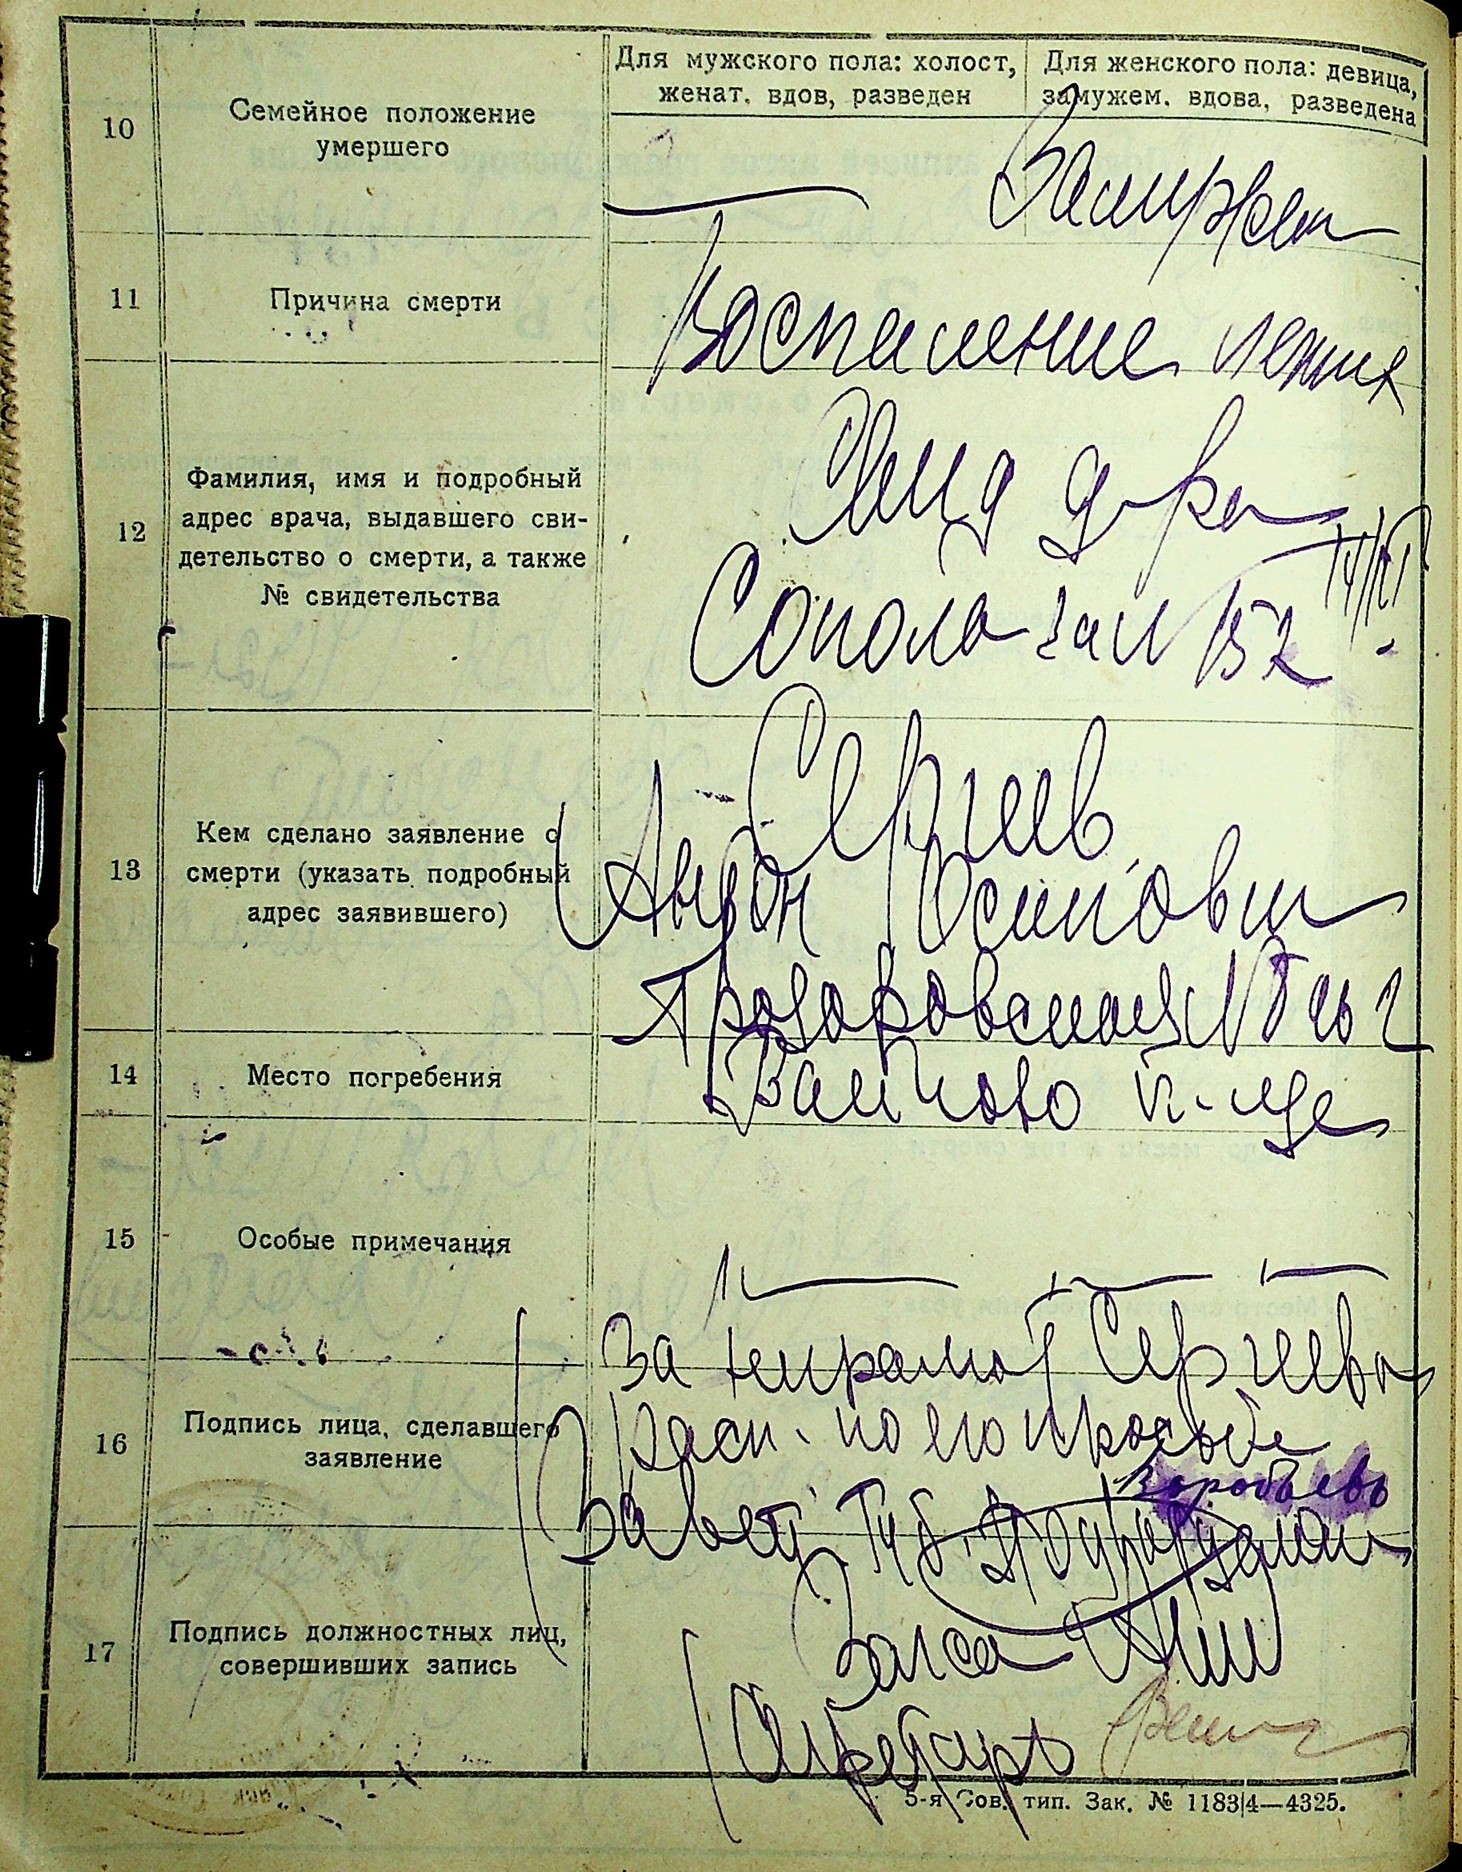 Для мужского пола: холост, женат, вдов, разведен
Для женского пола: девица, замужем, вдова, разведена
10
Семейное положение
умершего
Замужем
11
Причина смерти
Воспаление легких
12
Фамилия, имя и подробный
адрес врача, выдавшего сви-
детельство о смерти, а также
№ свидетельства
Сокола за № 152
13
Кем сделано заявление о
смерти (указать подробный
адрес заявившего)
Сергеев
Антон Осипович
Прозоровская № 8 кв 2
14
Место погребения
15
Особые примечания
16
Подпись лица, сделавшего
заявление
За неграмот Сергеева
расп. по его просьбе
Воробьева
17
Подпись должностных лиц,
совершивших запись
Завед. Губ. Подотделом
Загса
Секретарь
5-я Сов. тип. Зак. № 1183|4—4325.